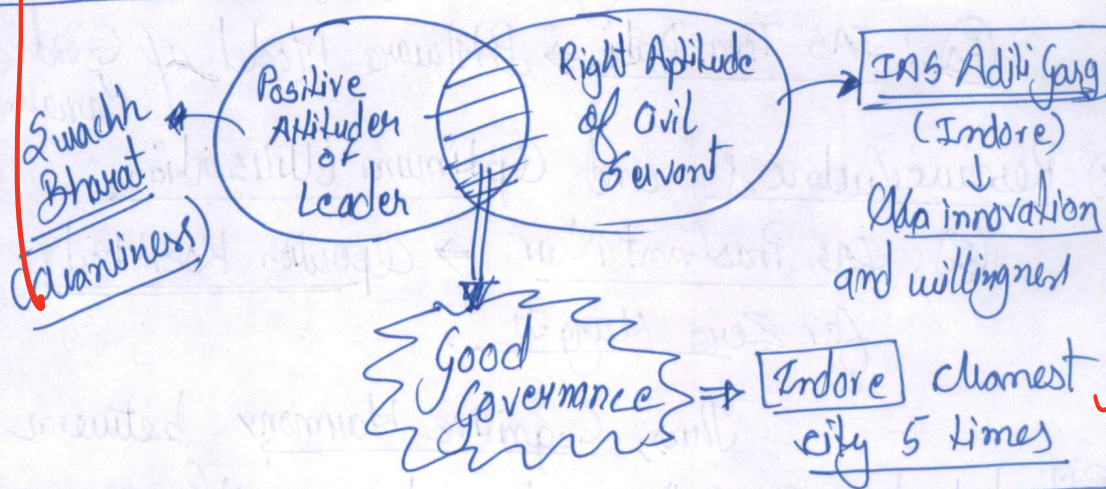 Swachh
Bharat
(Cleanliness)
Positive
Attitude
of
Leader
Right Aptitude
of Civil
Servant
IAS Aditi Garg
(Indore)
↓
innovation
and willingness
Good
Governance
⇒ Indore cleanest
city 5 times